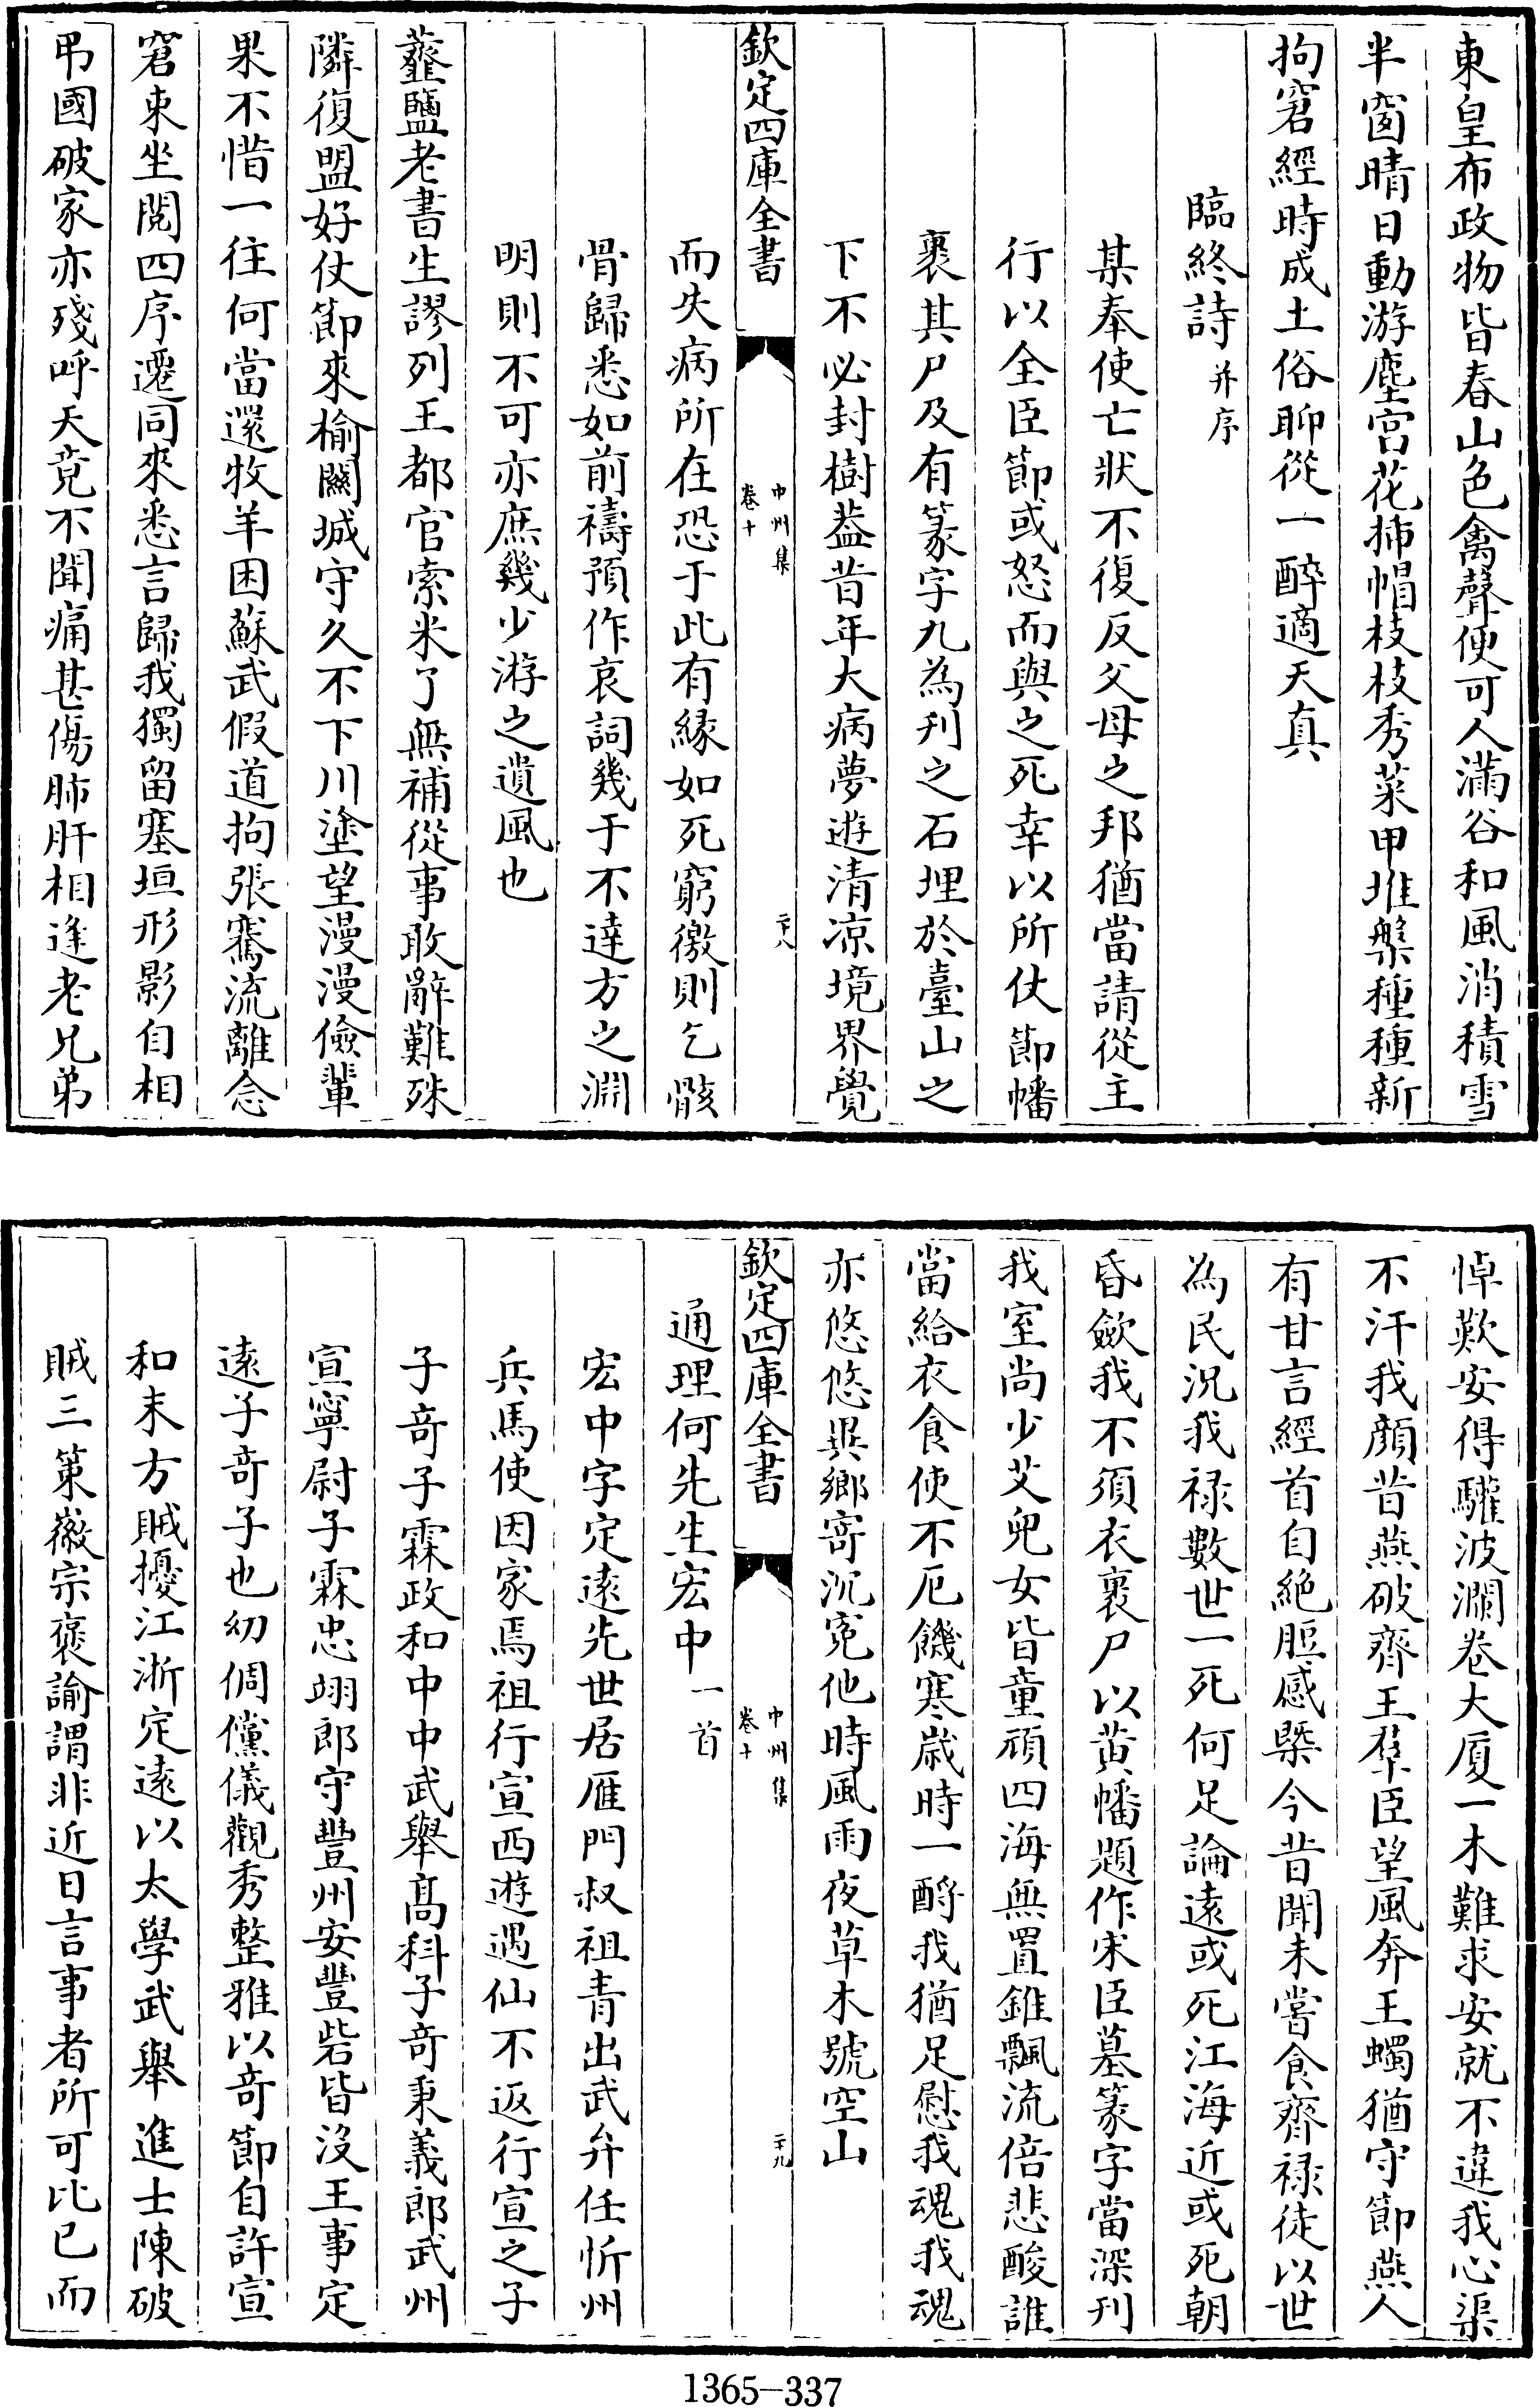 東皇布政物皆春山色禽聲便可人滿谷和風消積雪
半窗晴日動游塵宫花揷帽枝枝秀菜甲堆槃種種新
拘窘經時成土俗聊從一醉適天真
臨終詩并序
某奉使亡狀不復反父母之邦猶當請從主
行以全臣節或怒而與之死幸以所仗節幡
裹其尸及有篆字九為刋之石埋於臺山之
下不必封樹葢昔年大病夢遊清凉境界覺
欽定四庫全書
中州集
卷十
二十八
而失病所在恐于此有緣如死窮徼則乞骸
骨歸悉如前禱預作哀詞幾于不達方之淵
明則不可亦庶幾少游之遺風也
虀鹽老書生謬列王都官索米了無補從事敢辭難殊
隣復盟好仗節來榆關城守久不下川塗望漫漫儉輩
果不惜一往何當還牧羊困蘇武假道拘張騫流離念
窘束坐閱四序遷同來悉言歸我獨留塞垣形影自相
弔國破家亦殘呼天竟不聞痛甚傷肺肝相逢老兄弟
悼歎安得驩波瀾卷大厦一木難求安就不違我心渠
不汗我顔昔燕破齊王羣臣望風奔王蠋猶守節燕人
有甘言經首自絶脰感槩今昔聞未嘗食齊禄徒以世
為民況我禄數世一死何足論遠或死江海近或死朝
昏歛我不須衣裹尸以黄幡題作宋臣墓篆字當深刋
我室尚少艾兒女皆童頑四海無置錐飄流倍悲酸誰
當給衣食使不厄饑寒歲時一酹我猶足慰我魂我魂
亦悠悠異鄉寄沉寃他時風雨夜草木號空山
欽定四庫全書
中州集
卷十
二十九
通理何先生宏中一首
宏中字定遠先世居雁門叔祖青出武弁任忻州
兵馬使因家焉祖行宣西遊遇仙不返行宣之子
子竒子霖政和中中武舉髙科子竒秉義郎武州
宣寧尉子霖忠翊郎守豐州安豐砦皆沒王事定
遠子竒子也幼倜儻儀觀秀整雅以竒節自許宣
和末方賊擾江浙定遠以太學武舉進士陳破
賊三策徽宗褒諭謂非近日言事者所可比已而
1365-337